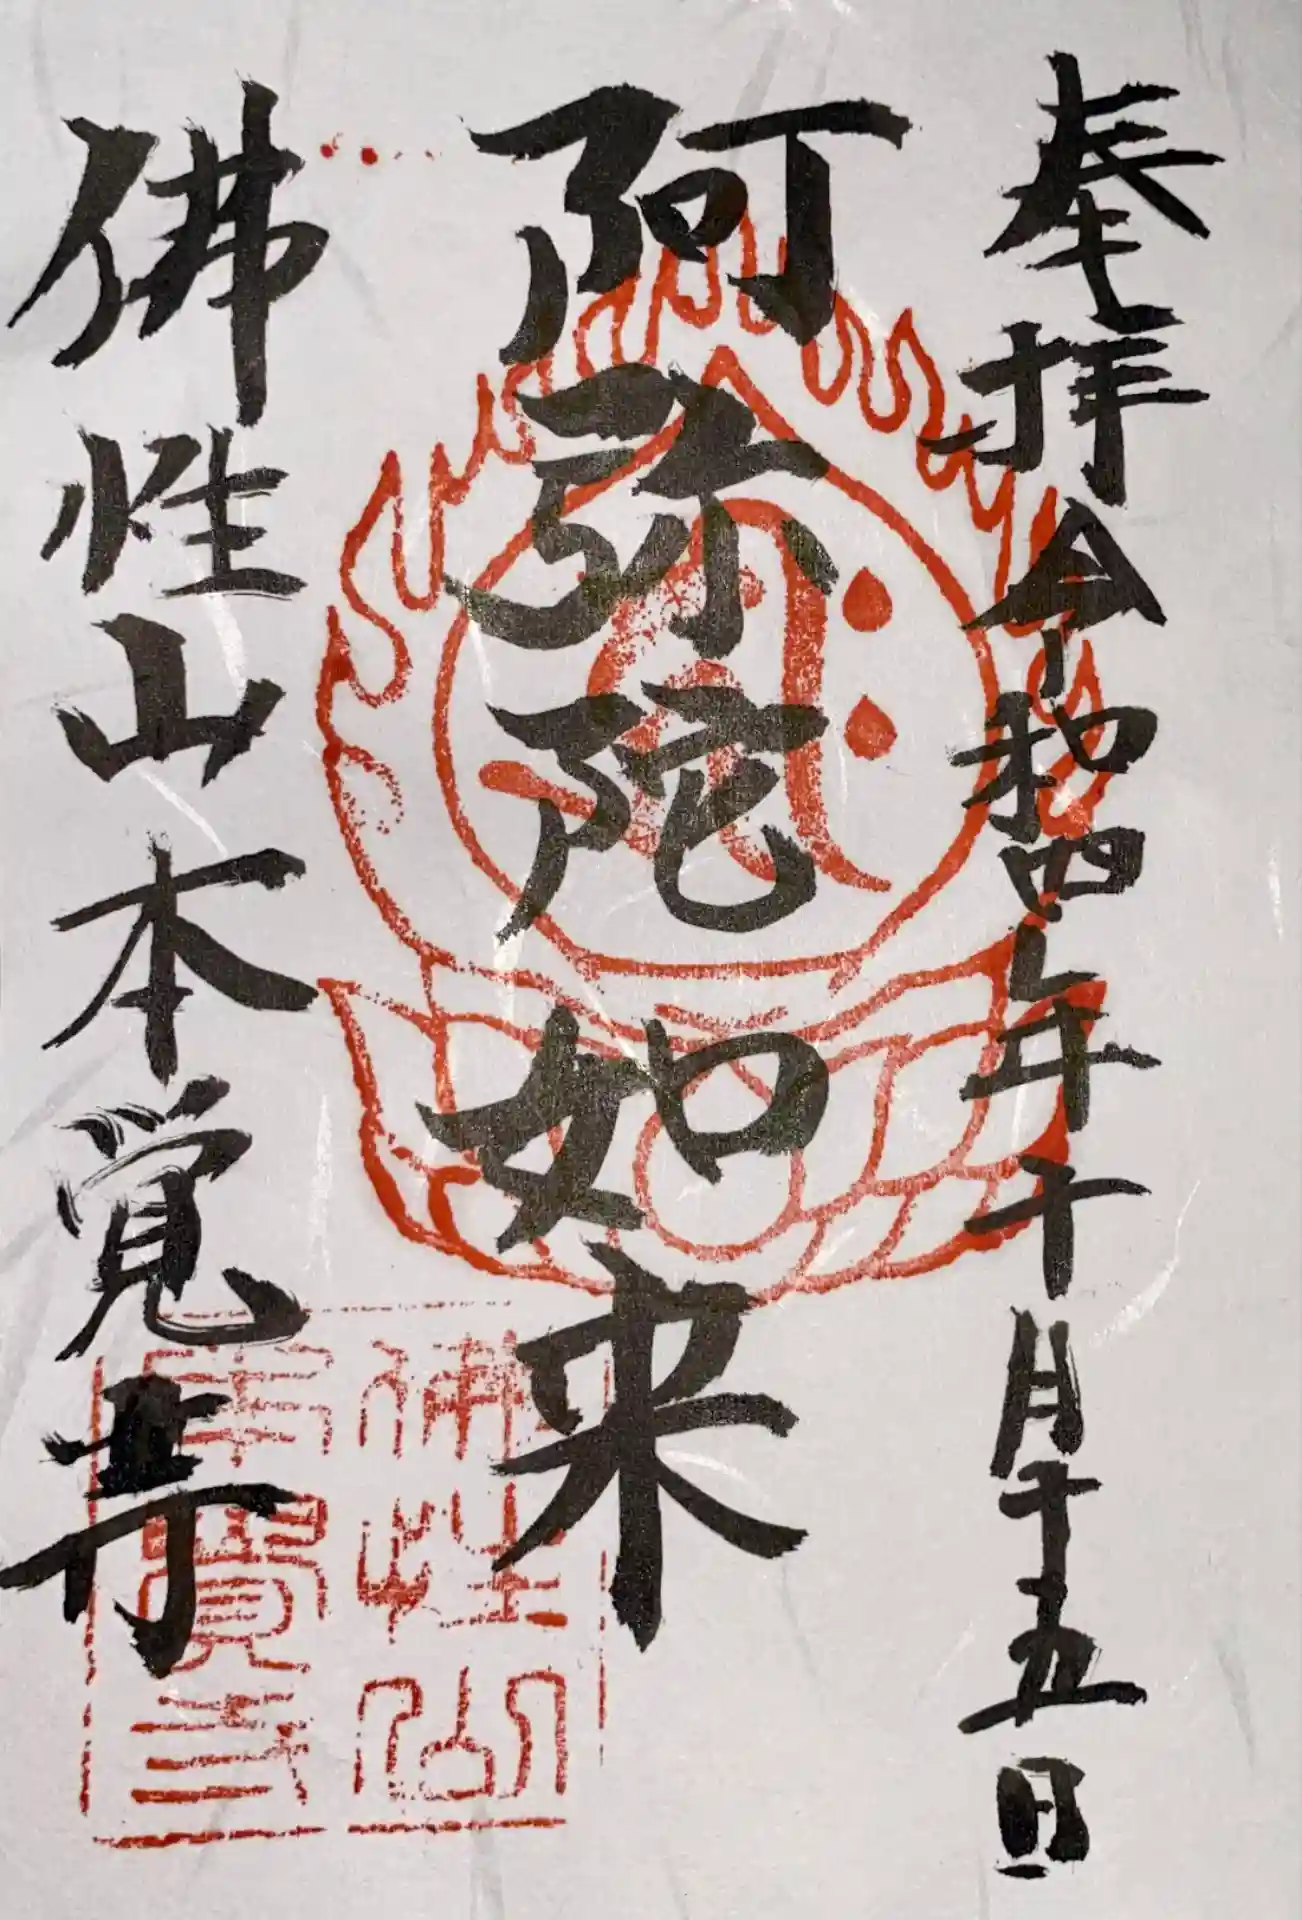 奉拝 令和四年十月十五日
阿弥陀如来
佛性山本覚寺
佛性山
本覚寺